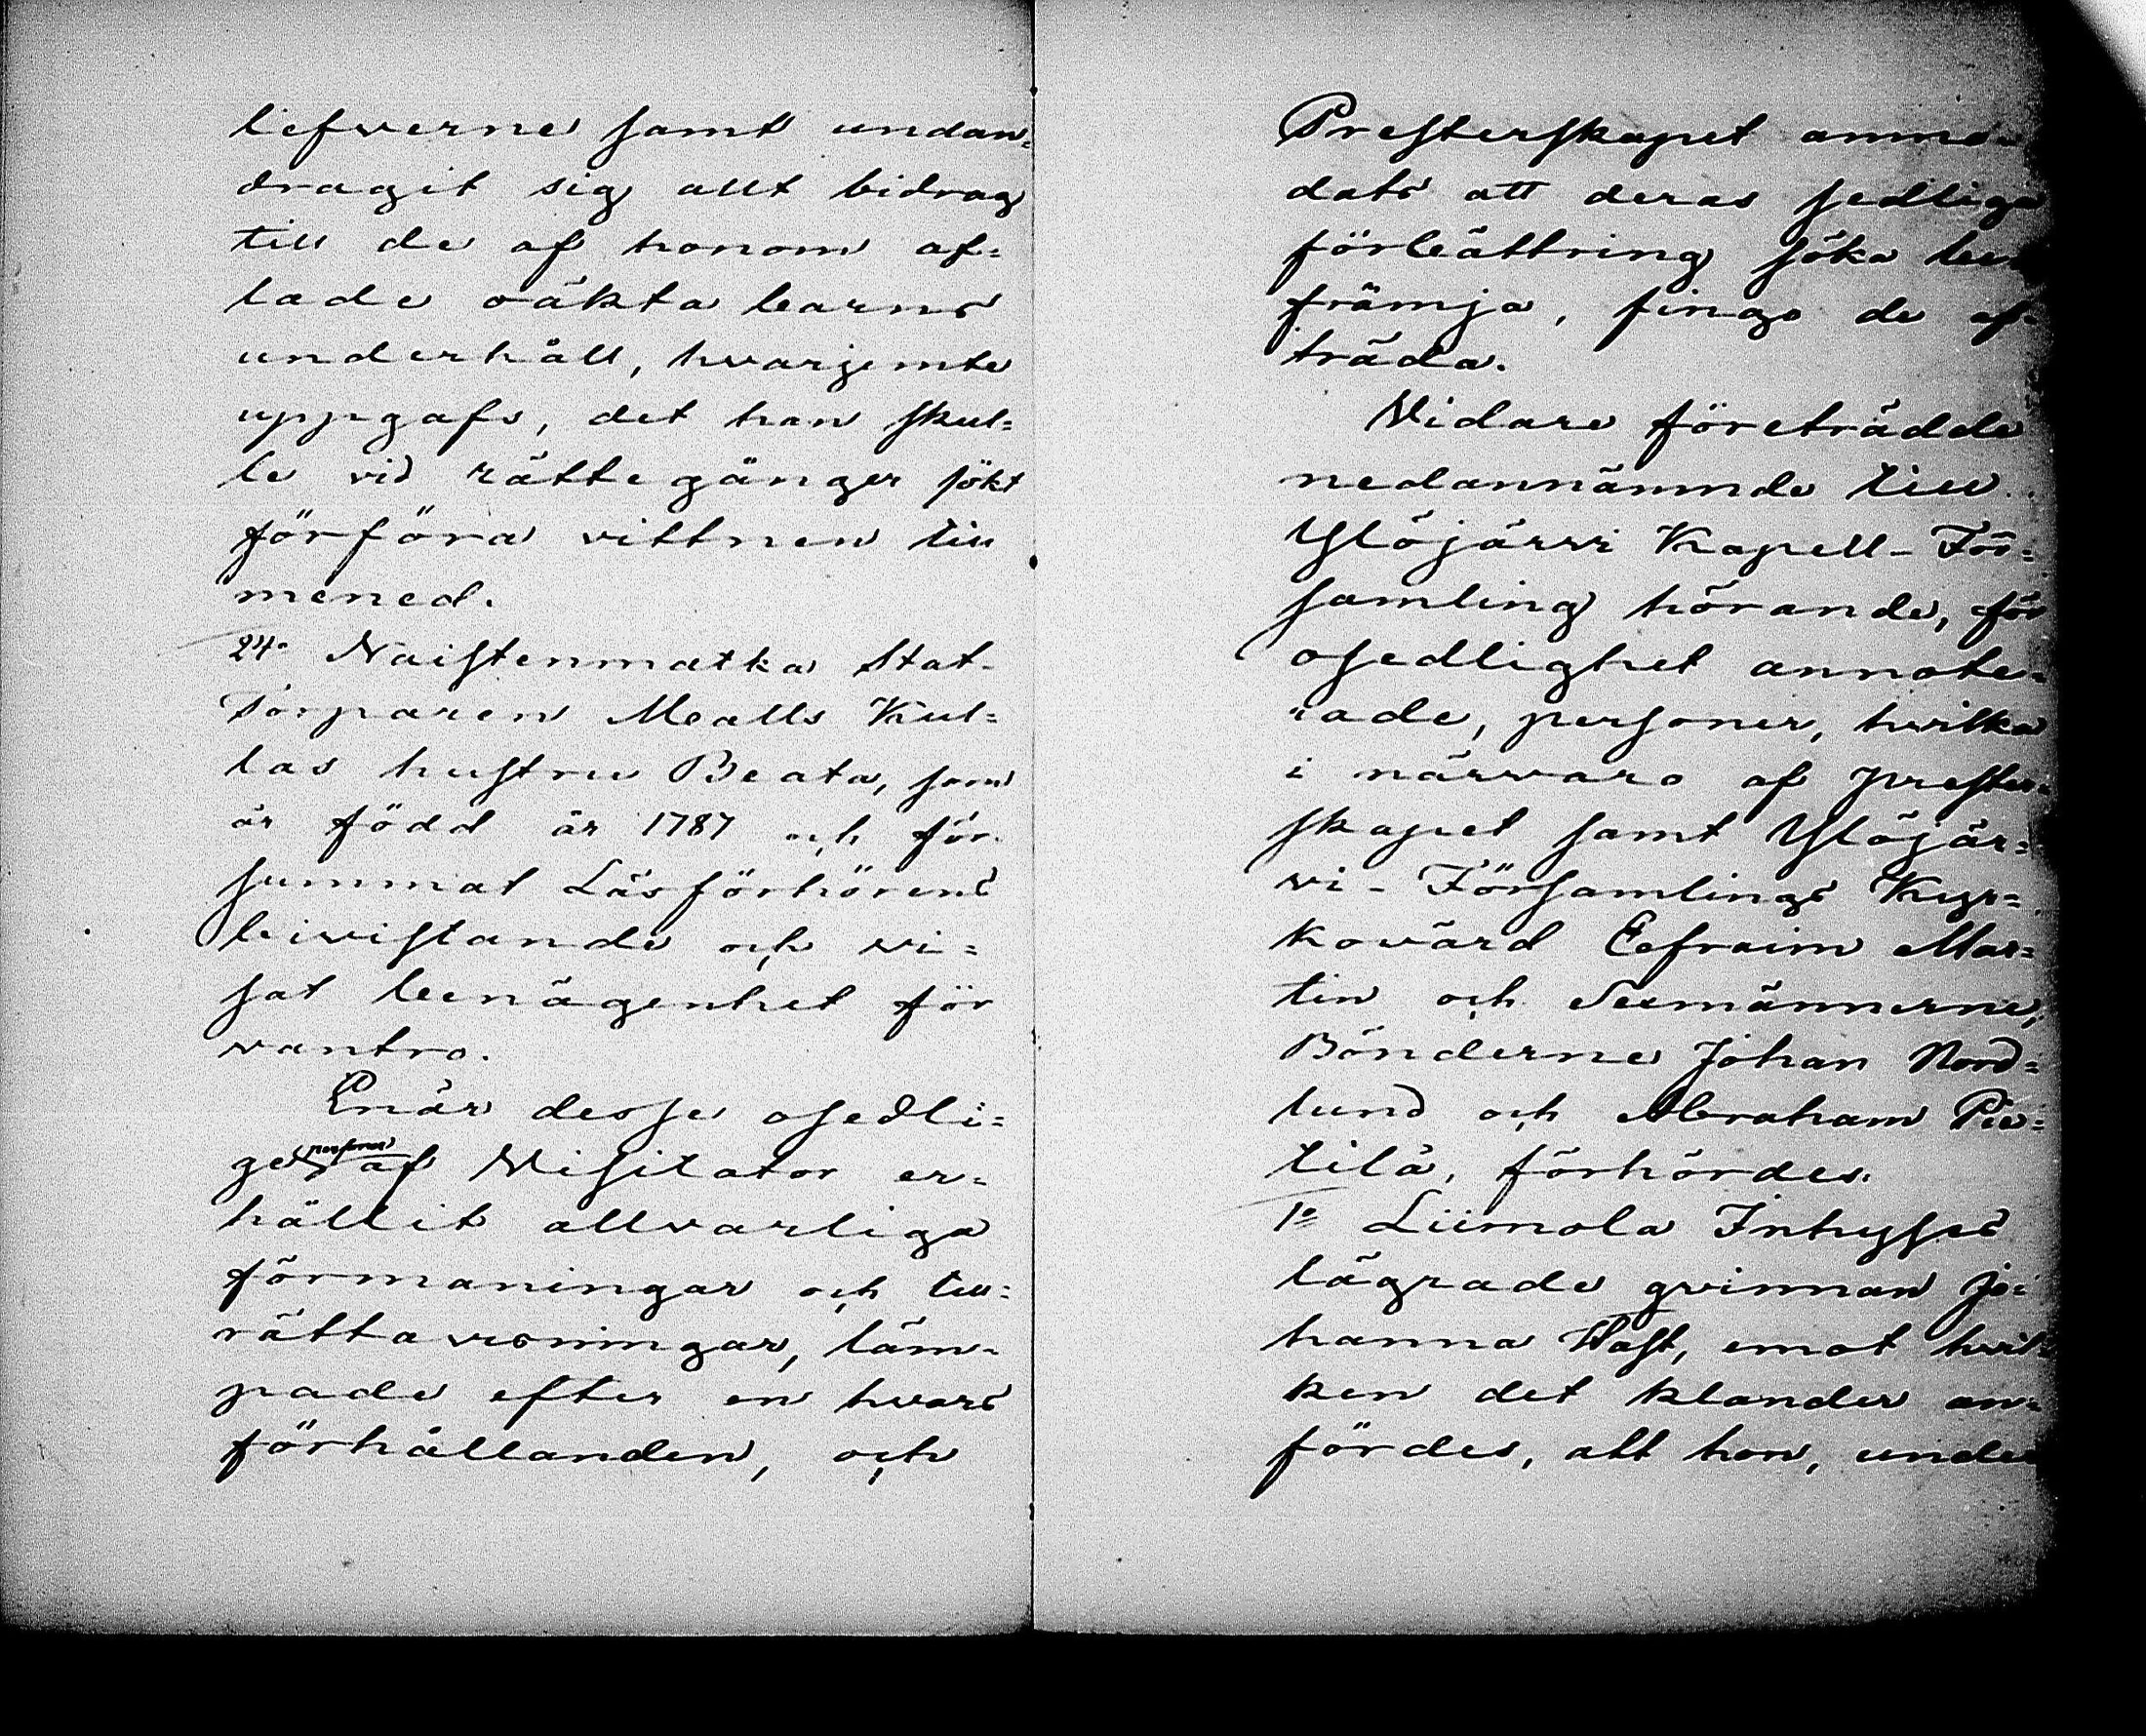 lefverne samt undan=
dragit sig allt bidrag
till de af honom af=
lade oäkta barns
underhåll, hvarjemte
uppgafs, det han skul=
le vid rättegånger sökt
förföra vittnen till
mened.
24o Naistenmatka Stat-
Torparen Matts Kul=
las hustru Beata, som
är född år 1787 och för-
summat Läsförhörens
bivistande och vi=
sat benägenhet för
vantro.
Enär desse osedli=
ge personer af Visitator er=
hållit allvarliga
förmaningar och till=
rättavisningar, läm=
pade efter en hvars
förhållanden, och
Presterskapet anmo=
dats att deras sedliga
förbättring söka be=
främja, fingo de af=
träda.
Vidare företrädde
nedannämnde till
Ylöjärvi Kapell-För=
samling hörande, för
osedlighet annote=
rade, personer, hvilka
i närvaro af prester=
skapet samt Ylöjär=
vi-Församlings Kyr=
kovärd Eefraim Mar=
tin och Sexmännerne,
Bönderne Johan Nord=
lund och Abraham Pie=
tilä, förhördes.
1o Liimola Inhyses
lägrade qvinnan Jo=
hanna Wast, emot hvil=
ken det klander an=
fördes, att hon, under